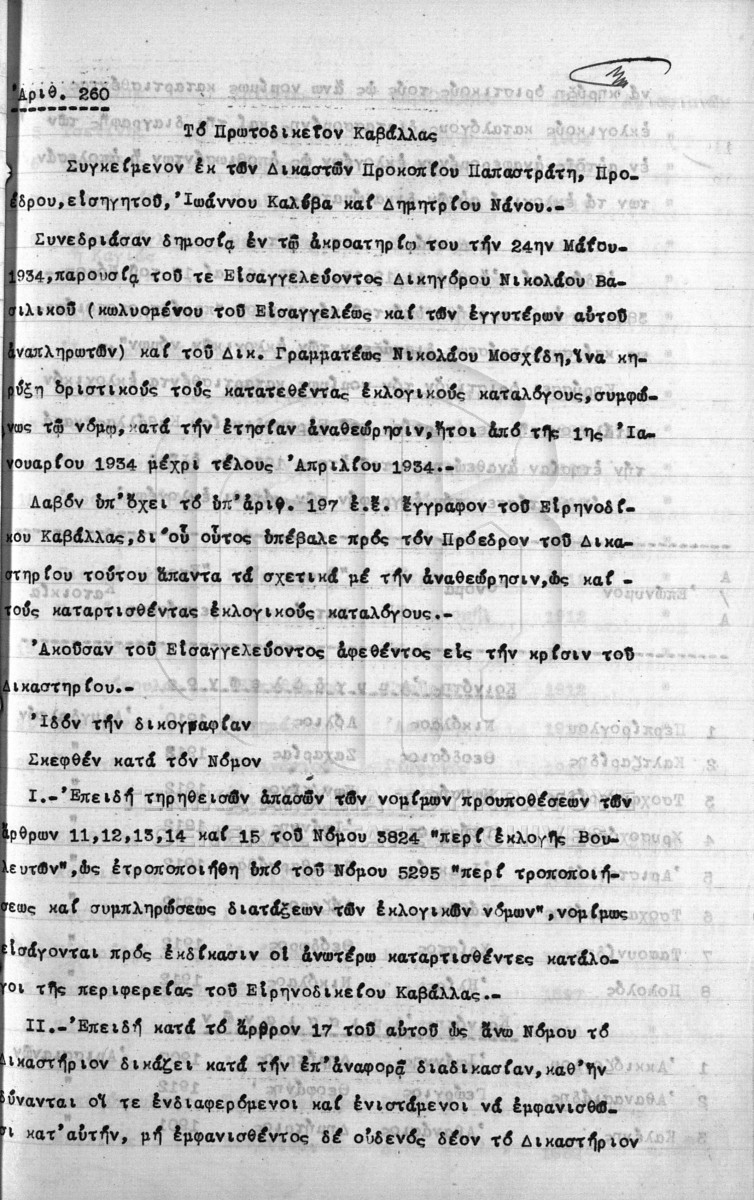 Ἀριθ. 260
Τό Πρωτοδικεῖον Καβάλλας
Συγκείμενον ἐκ τῶν Δικαστῶν Προκοπίου Παπαστράτη, Προ-
έδρου,εἰσηγητοῦ,Ἰωάννου Καλύβα καί Δημητρίου Νάνου.-
Συνεδριάσαν δημοσίᾳ ἐν τῷ ἀκροατηρίῳ του τήν 24ην Μαΐου-
1934,παρουσίᾳ τοῦ τε Εἰσαγγελεύοντος Δικηγόρου Νικολάου Βα-
σιλικοῦ (κωλυομένου τοῦ Εἰσαγγελέως καί τῶν ἐγγυτέρων αὐτοῦ
ἀναπληρωτῶν) καί τοῦ Δικ. Γραμματέως Νικολάου Μοσχίδη,ἵνα κη-
ρύξῃ ὁριστικούς τούς κατατεθέντας ἐκλογικούς καταλόγους,συμφώ-
νως τῷ νόμῳ,κατά τήν ἐτησίαν ἀναθεώρησιν,ἤτοι ἀπό τῆς 1ης Ἰα-
νουαρίου 1934 μέχρι τέλους Ἀπριλίου 1934.-
Λαβόν ὑπ'ὄψει τό ὑπ'ἀριθ. 197 ἐ.ἔ. ἔγγραφον τοῦ Εἰρηνοδί-
κου Καβάλλας,δι'οὗ οὗτος ὑπέβαλε πρός τόν Πρόεδρον τοῦ Δικα-
στηρίου τούτου ἅπαντα τά σχετικά μέ τήν ἀναθεώρησιν,ὡς καί -
τούς καταρτισθέντας ἐκλογικούς καταλόγους.-
Ἀκοῦσαν τοῦ Εἰσαγγελεύοντος ἀφεθέντος εἰς τήν κρίσιν τοῦ
Δικαστηρίου.-
Ἰδόν τήν δικογραφίαν
Σκεφθέν κατά τόν Νόμον
Ι.-Ἐπειδή τηρηθεισῶν ἁπασῶν τῶν νομίμων προυποθέσεων τῶν
ἄρθρων 11,12,13,14 καί 15 τοῦ Νόμου 3824 "περί ἐκλογῆς Βου-
λευτῶν",ὡς ἐτροποποιήθη ὑπό τοῦ Νόμου 5295 "περί τροποποιή-
σεως καί συμπληρώσεως διατάξεων τῶν ἐκλογικῶν νόμων",νομίμως
εἰσάγονται πρός ἐκδίκασιν οἱ ἀνωτέρω καταρτισθέντες κατάλο-
γοι τῆς περιφερείας τοῦ Εἰρηνοδικείου Καβάλλας.-
ΙΙ.-Ἐπειδή κατά τό ἄρθρον 17 τοῦ αὐτοῦ ὡς ἄνω Νόμου τό
Δικαστήριον δικάζει κατά τήν ἐπ'ἀναφορᾷ διαδικασίαν,καθ'ἥν
δύνανται οἵ τε ἐνδιαφερόμενοι καί ἐνιστάμενοι νά ἐμφανισθῶ-
σι κατ'αὐτήν, μή ἐμφανισθέντος δέ οὐδενός δέον τό Δικαστήριον